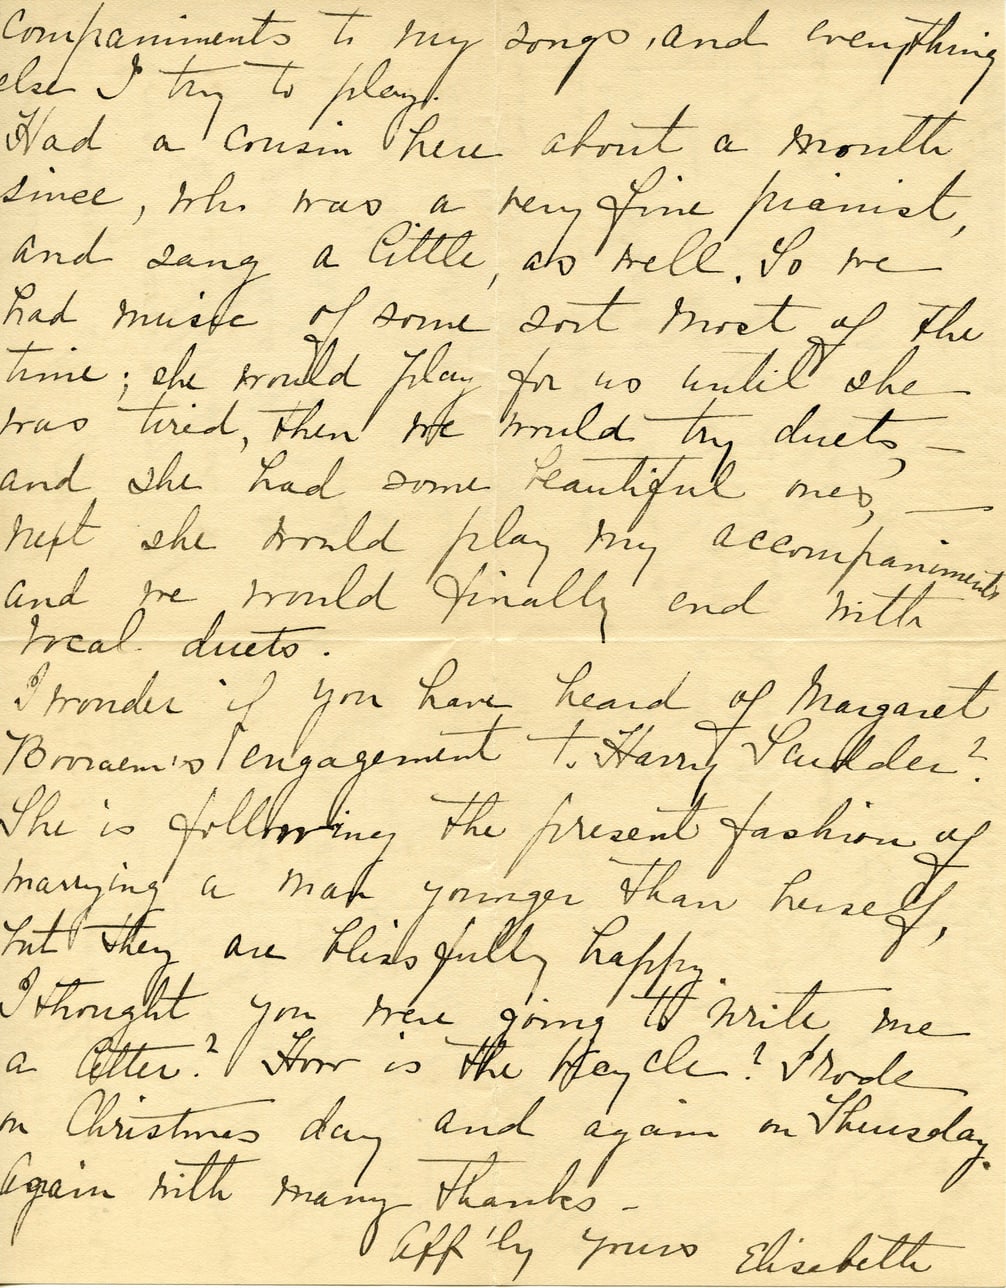 companiments to my songs, and everything
else I try to play.
Had a cousin here about a month
since, who was a very fine pianist,
and sang a little, as well. So we
had music of some sort most of the
time; she would play for us until she
was tired, then we would try duets, —
and she had some beautiful ones, —
next she would play my accompaniments
and we would finally end with
vocal duets.
I wonder if you have heard of Margaret
Booraem's engagement to Harry Scudder?
She is following the present fashion of
marrying a man younger than herself,
but they are blissfully happy.
I thought you were going to write me
a letter? How is the bicycle? I rode
on Christmas day and again on Thursday.
Again with many thanks —
Aff'ly yours Elisabeth